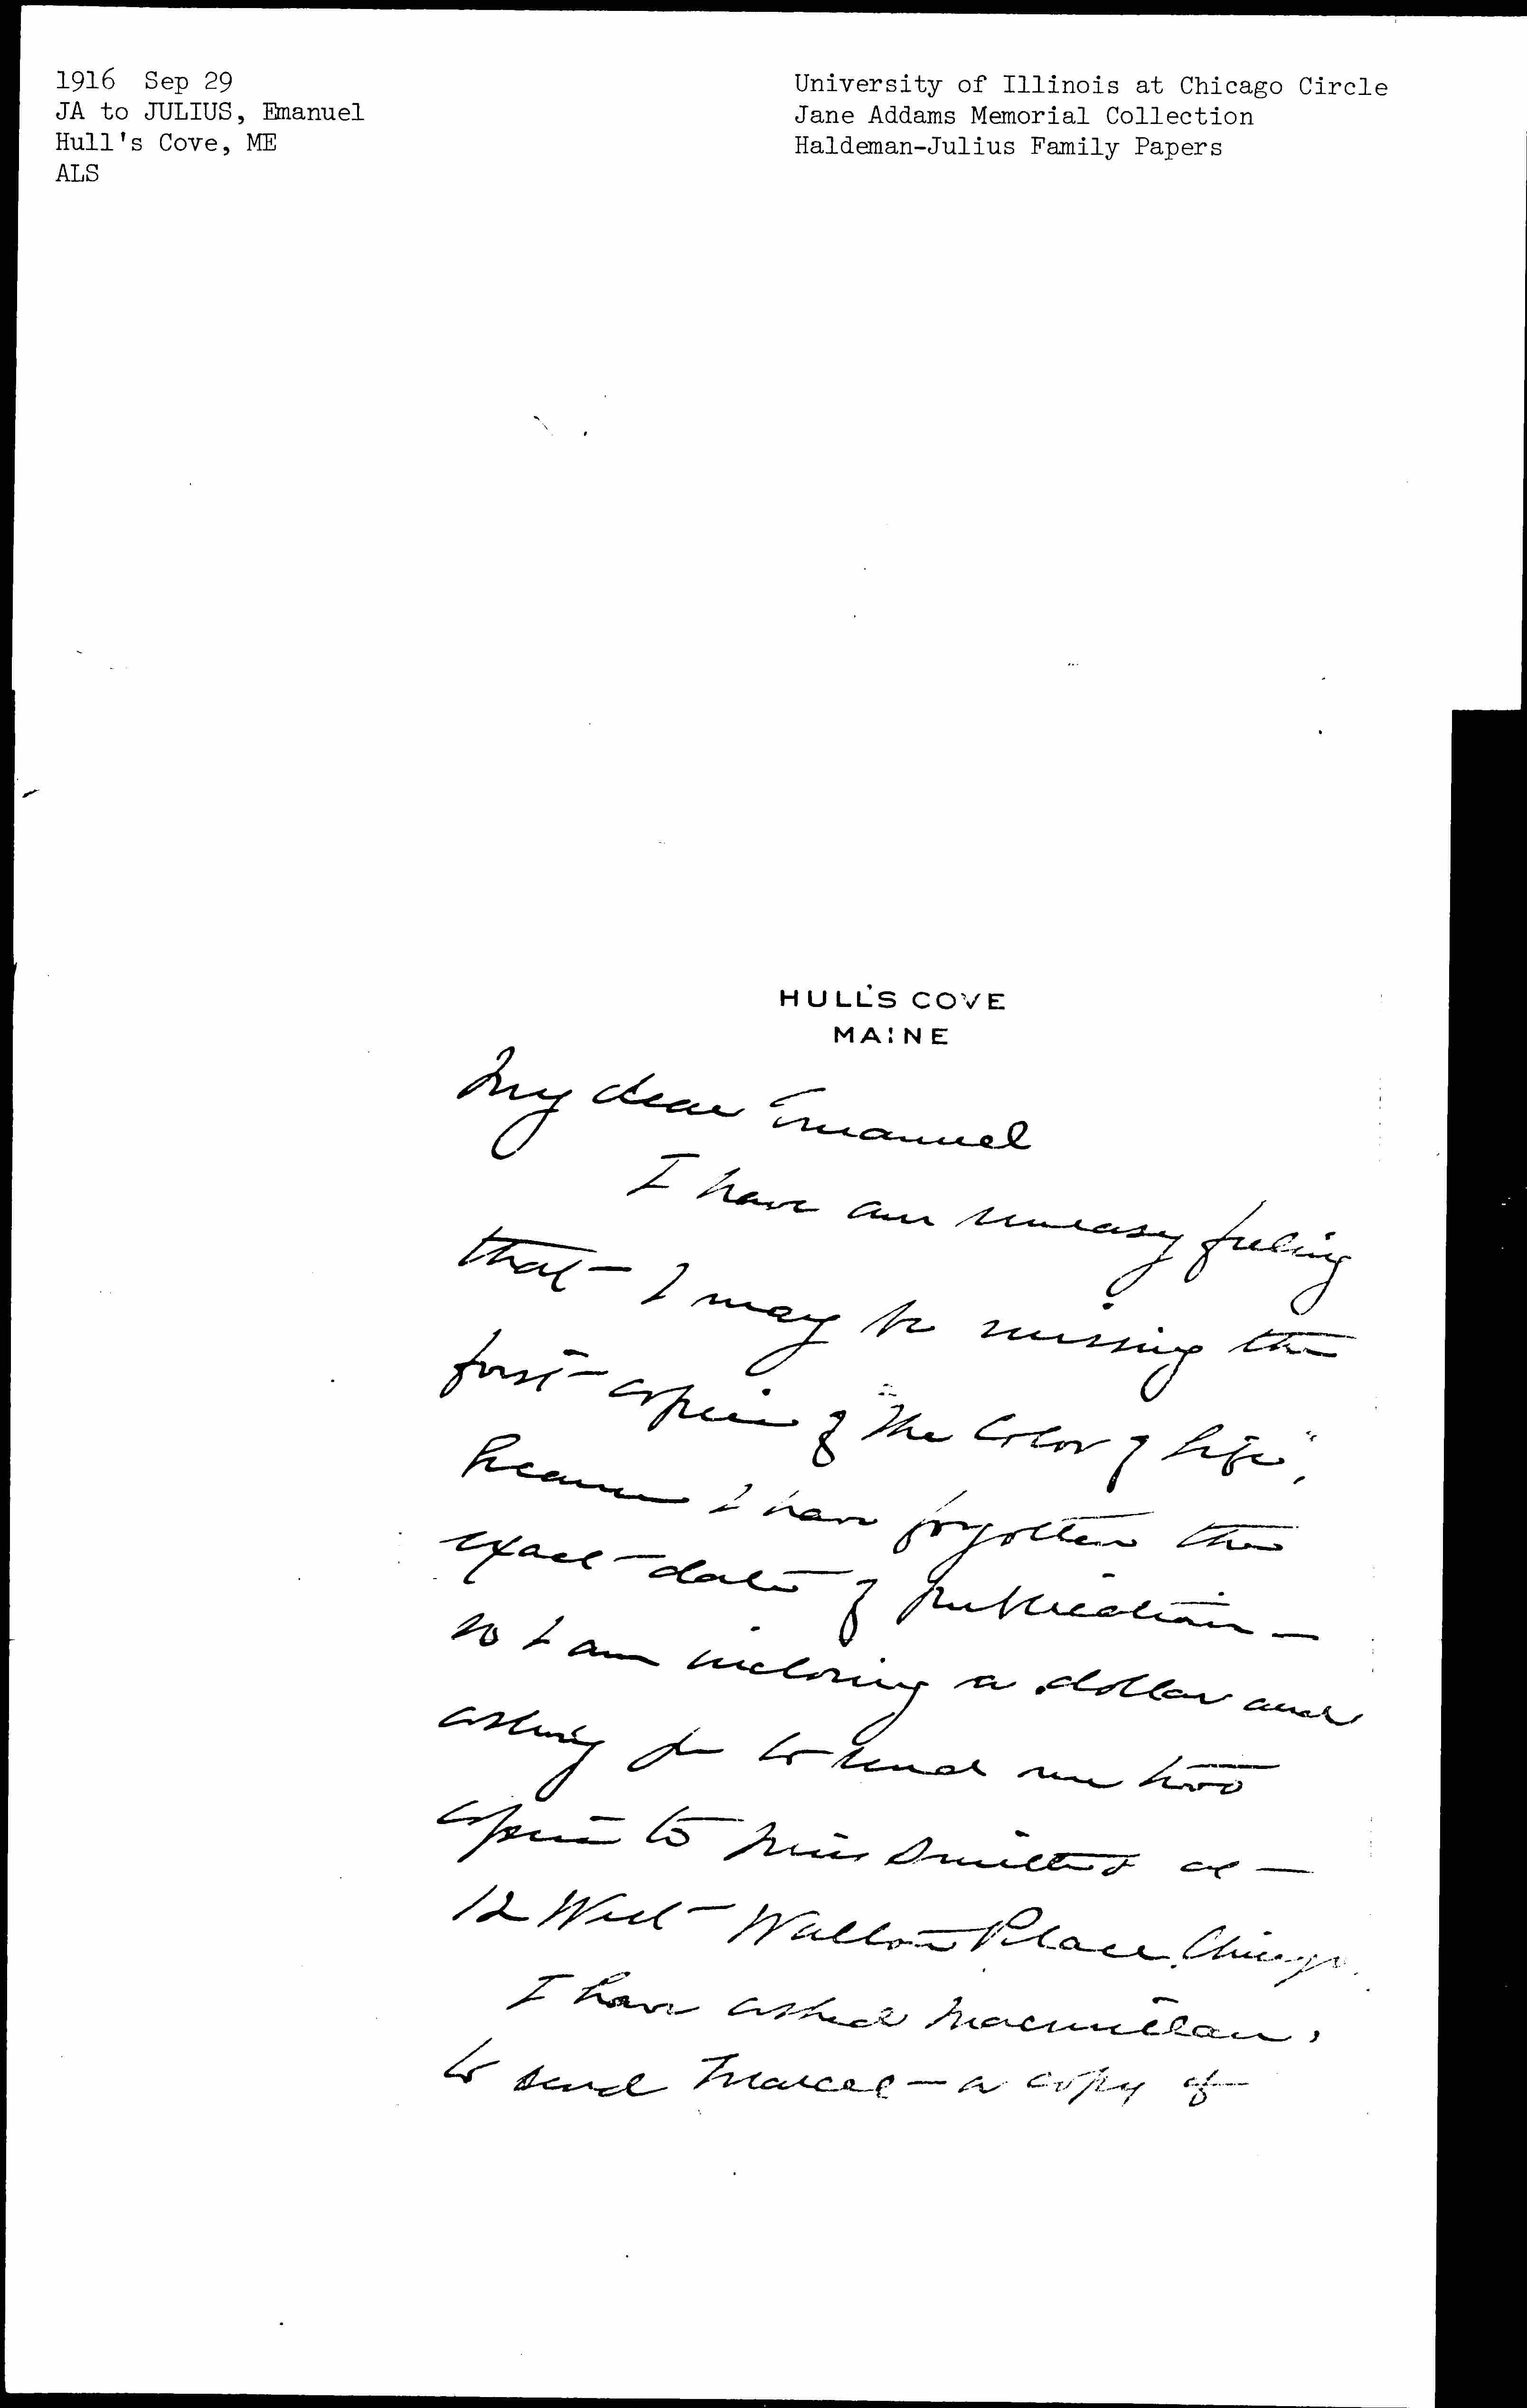 1916 Sep 29
JA to JULIUS, Emanuel
Hull's Cove, ME
ALS
University of Illinois at Chicago Circle
Jane Addams Memorial Collection
Haldeman-Julius Family Papers
HULL'S COVE
MAINE
My dear Emanuel
I have an uneasy feeling
that I may be missing the
first copies of "The Color of Life",
because I have forgotten the
exact date of publication —
so I am inclosing a dollar and
asking you to send me two
copies to Miss Smith's at
12 West Walton Place, Chicago.
I have asked Macmillan,
to send Marcet a copy of